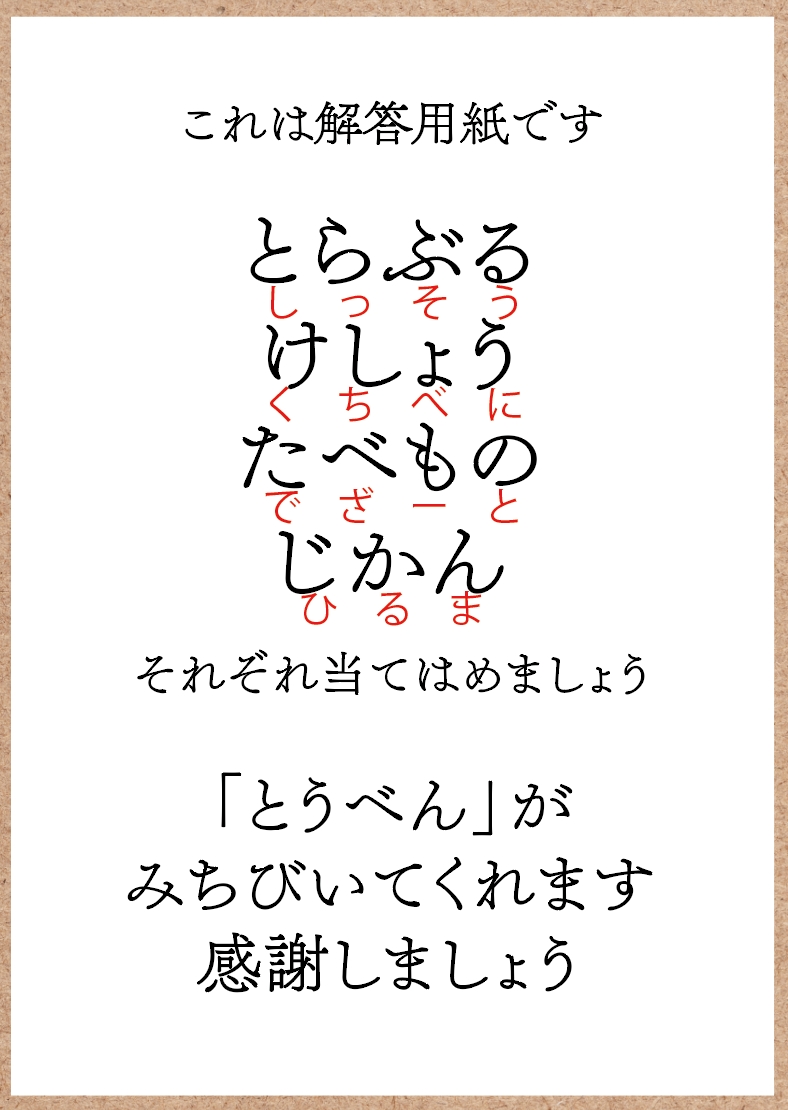 これは解答用紙です
とらぶる
しっそう
けしょう
くちべに
たべもの
でざーと
じかん
ひるま
それぞれ当てはめましょう
「とうべん」が
みちびいてくれます
感謝しましょう